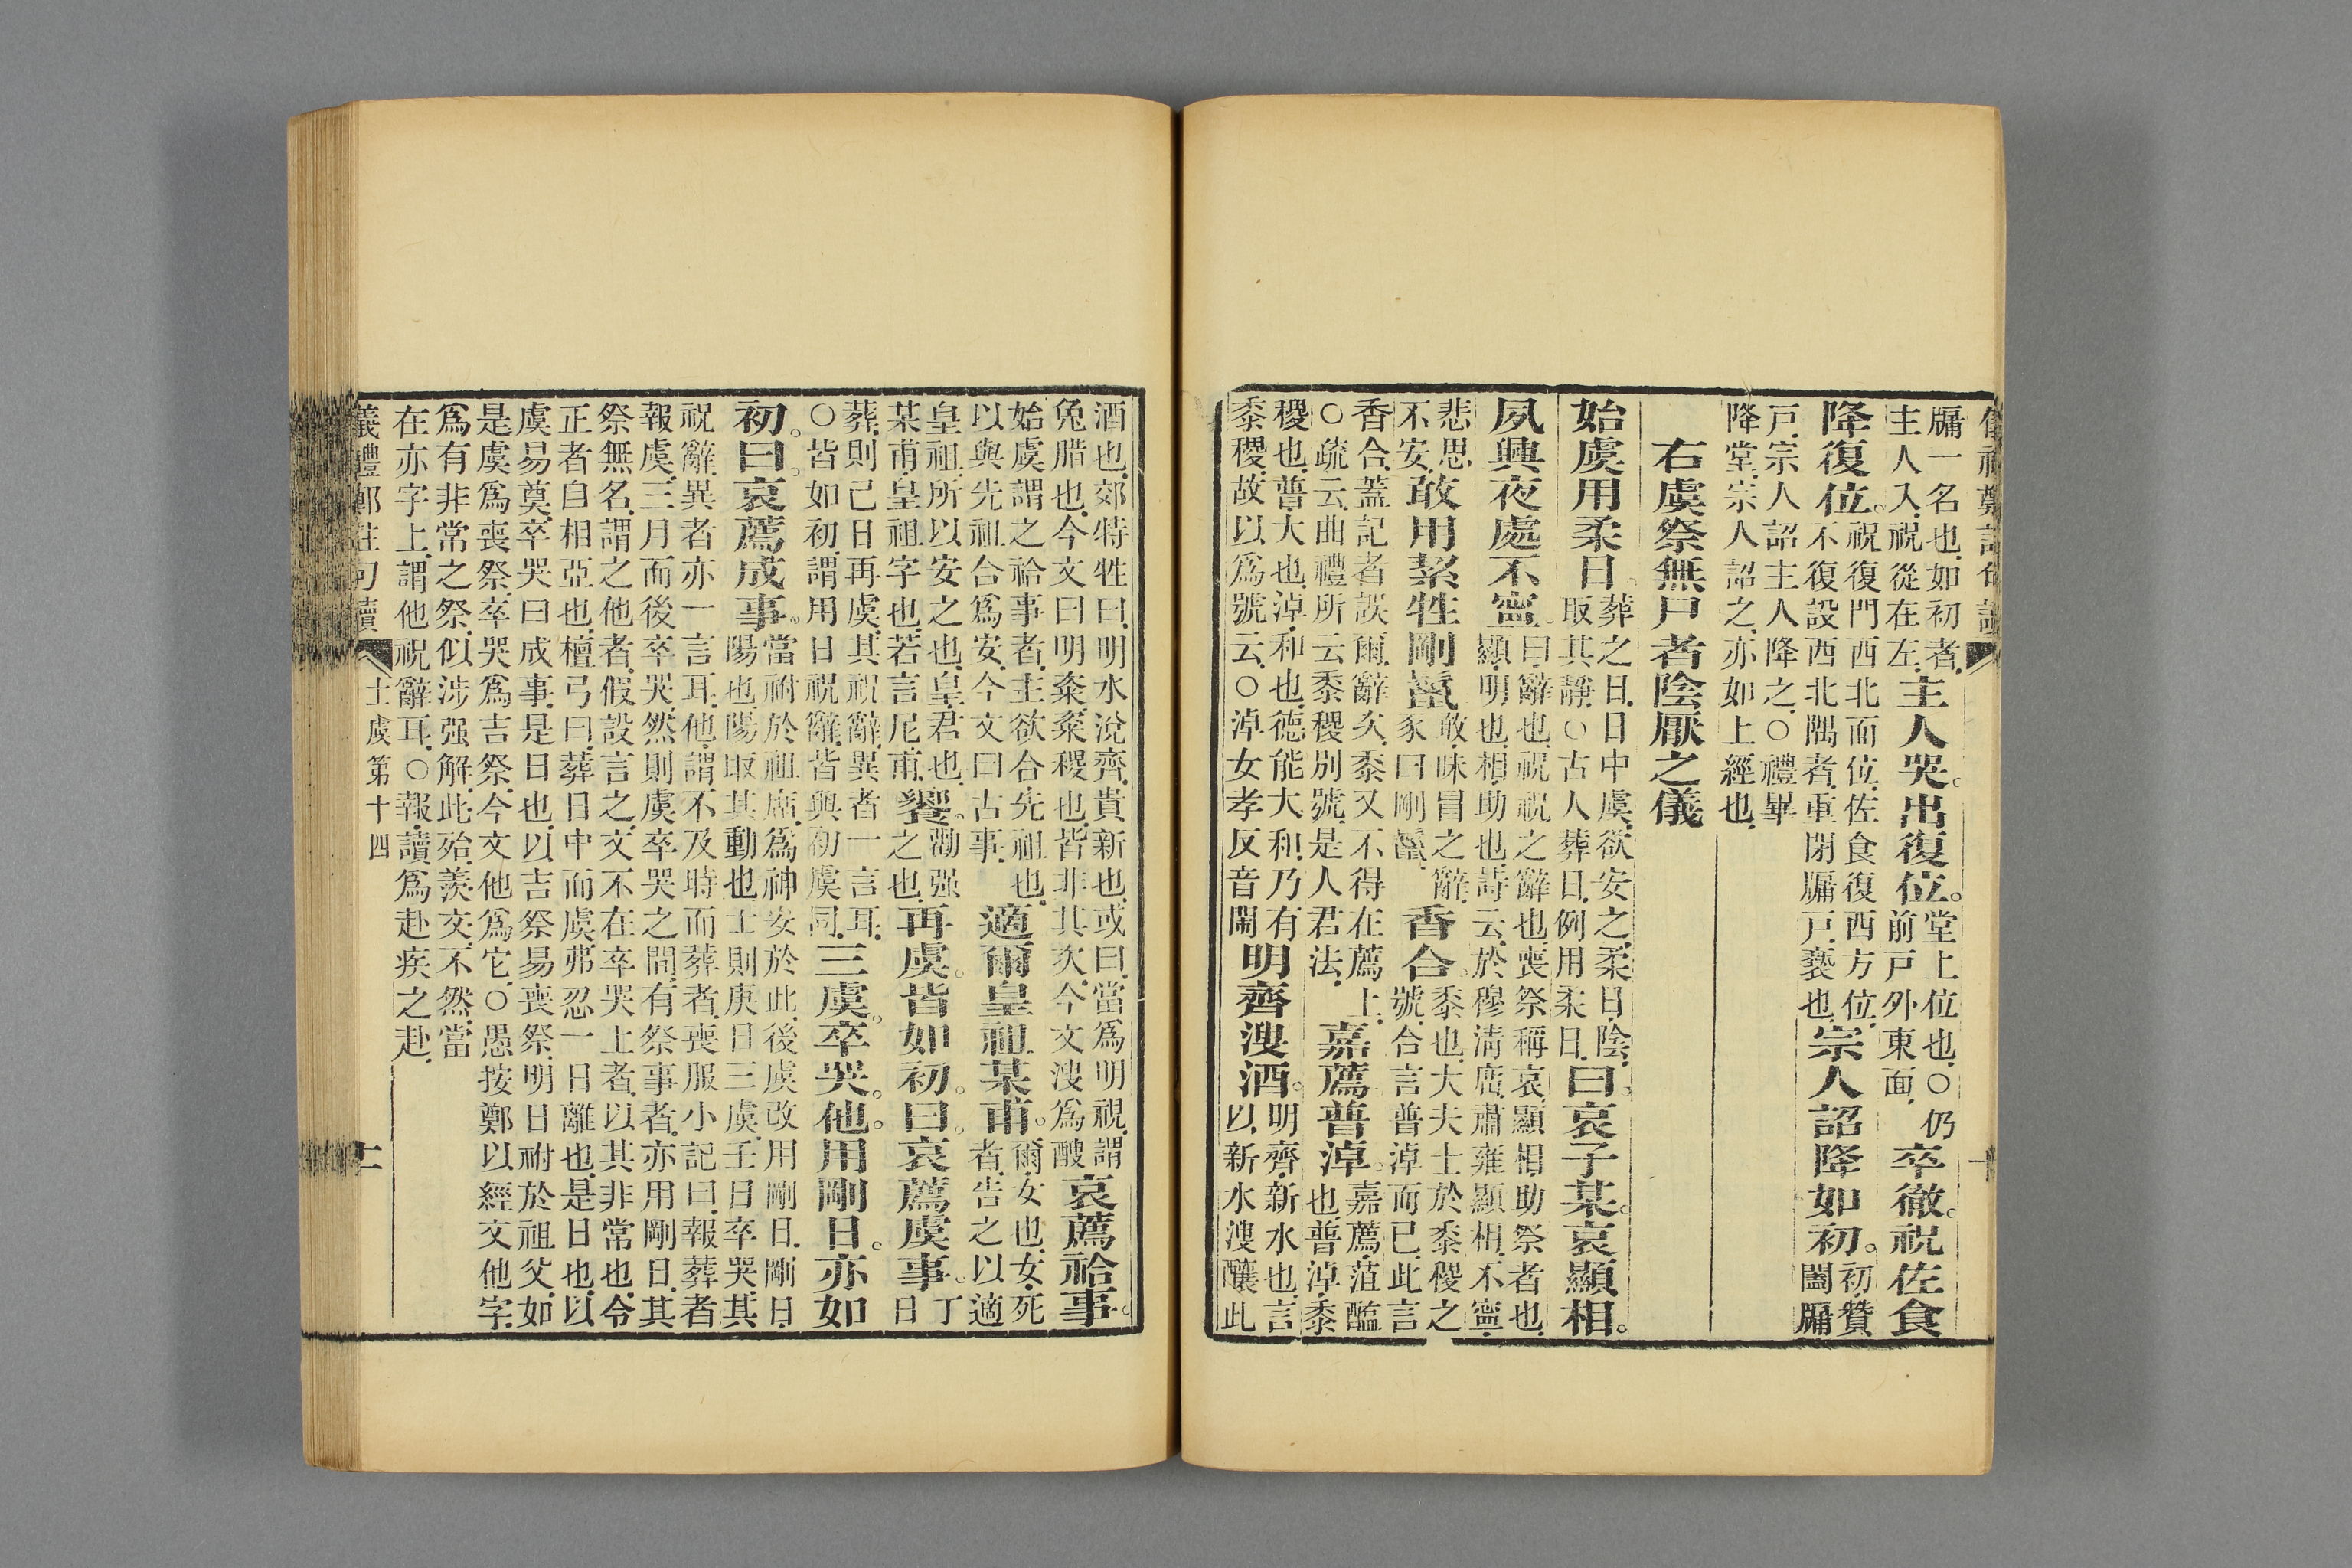 牖一名也如初者主人入祝從在左主人哭。出復位。堂上位也○仍前戶外東面卒徹。祝佐食
降復位。祝復門西北面位佐食復西方位不復設西北隅者重閉牖戶褻也宗人詔降如初。初贊闔牖
戶宗人詔主人降之○禮畢降堂宗人詔之亦如上經也
右虞祭無尸者陰厭之儀
始虞用柔日。葬之日日中虞欲安之柔日陰取其靜○古人葬日例用柔日曰。哀子某。哀顯相。
夙興夜處不寧。曰辭也祝祝之辭也喪祭稱哀顯相助祭者也顯明也相助也詩云於穆清廟肅雍顯相不寧
悲思不安敢用絜牲剛鬣敢昧冒之辭豕曰剛鬣香合。黍也大夫士於黍稷之號合言普淖而已此言
香合蓋記者誤爾辭次黍又不得在薦上○疏云曲禮所云黍稷別號是人君法嘉薦普淖。嘉薦菹醢也普淖黍
稷也普大也淖和也德能大和乃有黍稷故以爲號云○淖女孝反音鬧明齊溲酒。明齊新水也言以新水溲釀此
酒也郊特牲曰明水涗齊貴新也或曰當爲明視謂兔腊也今文曰明粢粢稷也皆非其次今文溲爲醙哀薦祫事。
始虞謂之祫事者主欲合先祖也以與先祖合爲安今文曰古事適爾皇祖某甫。爾女也女死者告之以適
皇祖所以安之也皇君也某甫皇祖字也若言尼甫饗。勸强之也再虞。皆如初。曰。哀薦虞事。丁日
葬則己日再虞其祝辭異者一言耳○皆如初謂用日祝辭皆與初虞同三虞。卒哭。他。用剛日。亦如
初。曰。哀薦成事。當祔於祖廟爲神安於此後虞改用剛日剛日陽也陽取其動也士則庚日三虞壬日卒哭其
祝辭異者亦一言耳他謂不及時而葬者喪服小記曰報葬者報虞三月而後卒哭然則虞卒哭之間有祭事者亦用剛日其
祭無名謂之他者假設言之文不在卒哭上者以其非常也令正者自相亞也檀弓曰葬日中而虞弗忍一日離也是日也以
虞易奠卒哭曰成事是日也以吉祭易喪祭明日祔於祖父如是虞爲喪祭卒哭爲吉祭今文他爲它○愚按鄭以經文他字
爲有非常之祭似涉强解此殆羨文不然當在亦字上謂他祝辭耳○報讀爲赴疾之赴
儀禮鄭註句讀 士虞第十四 十一